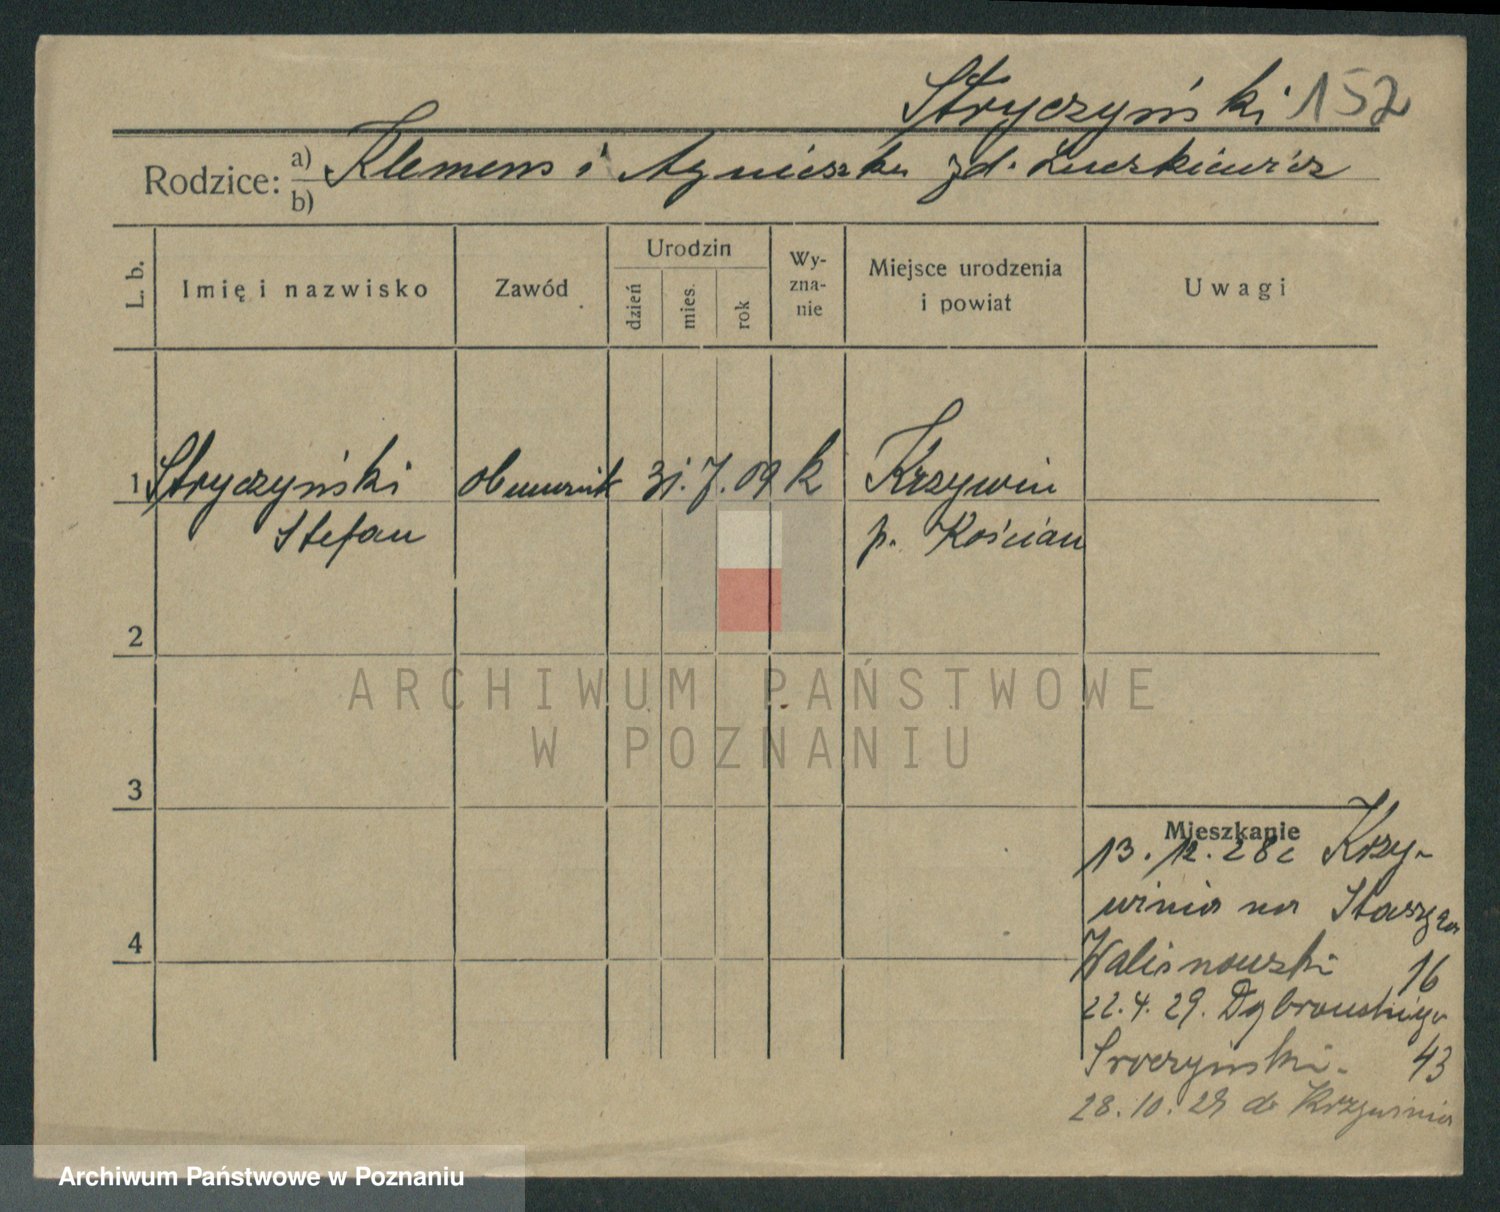 Stryczyński 152
Rodzice: a) Klemens i Agnieszka zd. Łuszkiewicz
b)
L. b.
Imię i nazwisko
Zawód
Urodzin
dzień
mies.
rok
Wy-
zna-
nie
Miejsce urodzenia
i powiat
Uwagi
1 Stryczyński obuwnik 31. 7. 09 k Krzywiń
Stefan p. Kościan
2
ARCHIWUM PAŃSTWOWE
W POZNANIU
3
Mieszkanie
13. 12. 28 z Krzy-
winia na Staszyca
4
Walisnowski 16
22. 4. 29. Dąbrowskiego
Sroczyński - 43
28. 10. 29 do Krzywinia
Archiwum Państwowe w Poznaniu